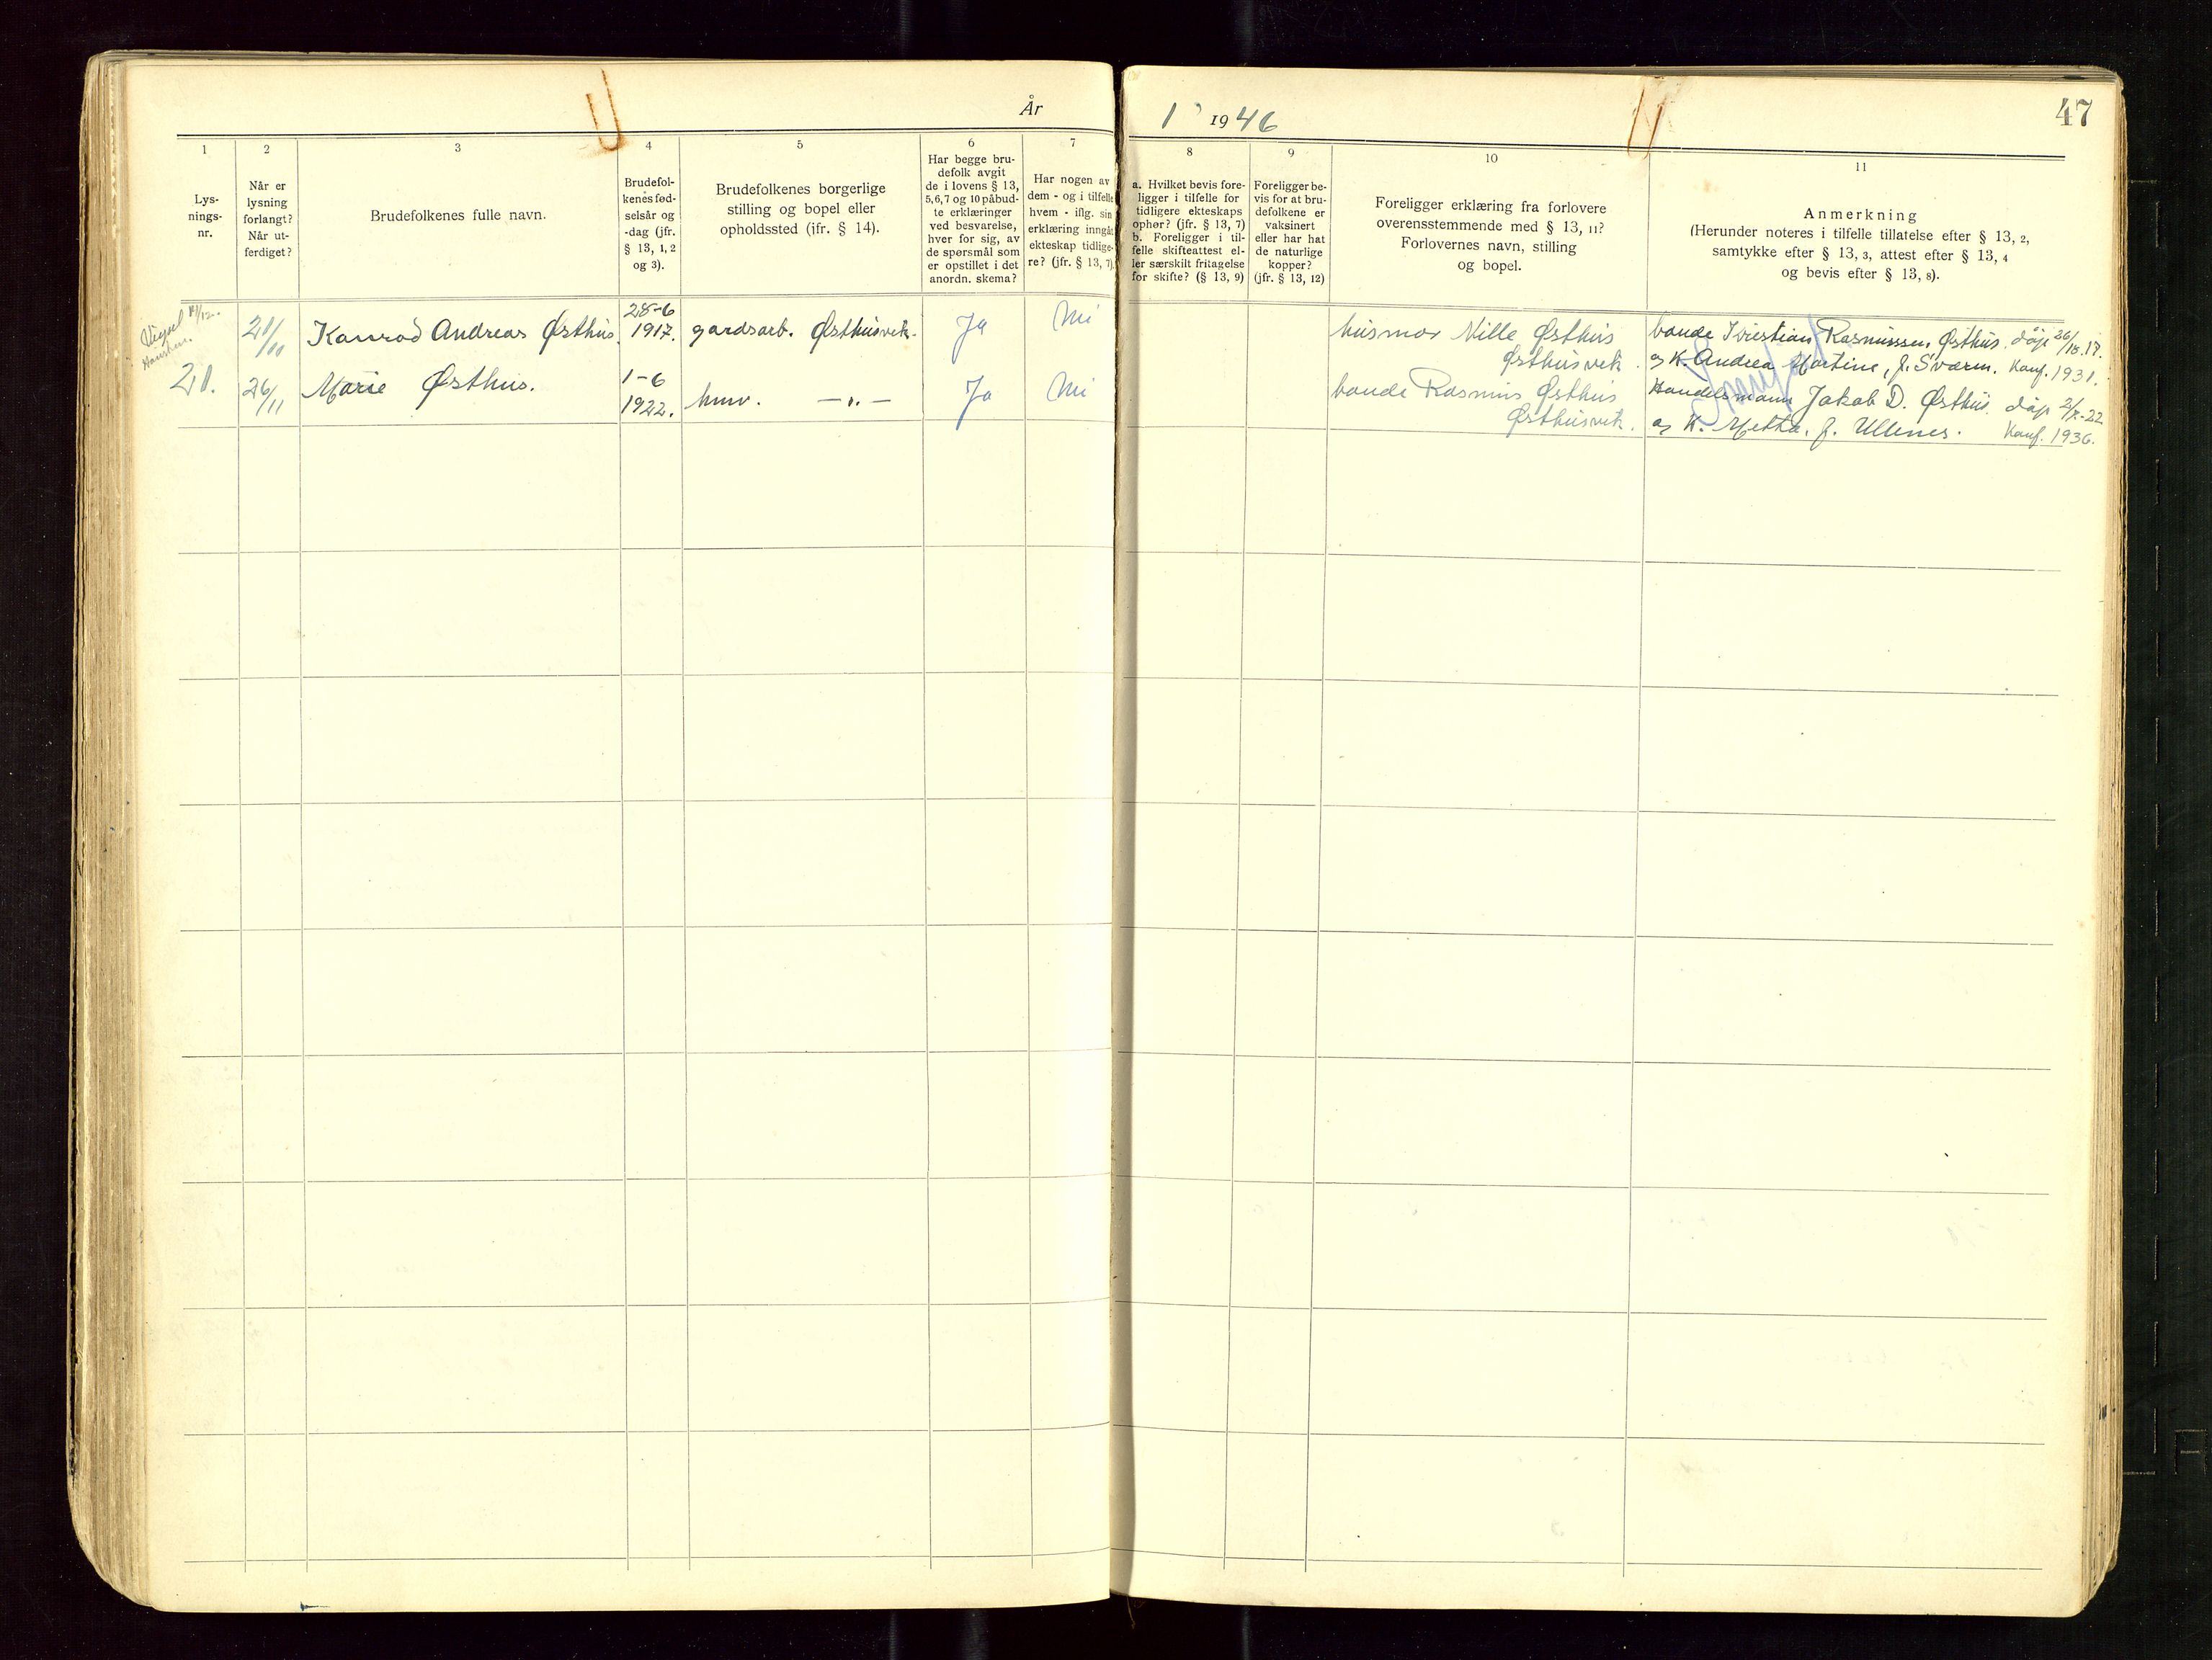 År
1 1946
47
1
Lys-
nings-
nr.
2
Når er
lysning
forlangt?
Når ut-
ferdiget?
3
Brudefolkenes fulle navn.
4
Brudefol-
kenes fød-
selsår og
-dag (jfr.
§ 13, 1, 2
og 3).
5
Brudefolkenes borgerlige
stilling og bopel eller
opholdssted (jfr. § 14).
6
Har begge bru-
defolk avgit
de i lovens § 13,
5,6,7 og 10 påbud-
te erklæringer
ved besvarelse,
hver for sig, av
de spørsmål som
er opstillet i det
anordn. skema?
7
Har nogen av
dem - og i tilfelle
hvem - iflg. sin
erklæring inngåt
ekteskap tidlige-
re? (jfr. § 13, 7)
8
a. Hvilket bevis fore-
ligger i tilfelle for
tidligere ekteskaps
ophør? (jfr. § 13, 7)
b. Foreligger i til-
felle skifteattest el-
ler særskilt fritagelse
for skifte? (§ 13, 9)
9
Foreligger be-
vis for at bru-
defolkene er
vaksinert
eller har hat
de naturlige
kopper?
(jfr. § 13, 12)
10
Foreligger erklæring fra forlovere
overensstemmende med § 13, 11?
Forlovernes navn, stilling
og bopel.
11
Anmerkning
(Herunder noteres i tilfelle tillatelse efter § 13, 2,
samtykke efter § 13, 3, attest efter § 13, 4
og bevis efter § 13, 8).
Vigsel
21.
Konrad Andreas Østhus.
28-6
1917.
gardsarb. Østhusvik.
Ja
Nei
husmor Nille Østhus
Østhusvik.
bonde Kristian Rasmussen Østhus. døpt 26/
og K. Andrea Martine, f. Sværen. Konf. 1931.
26/11
Marie Østhus.
1-6
1922.
husv. -"-
Ja
Nei
bonde Rasmus Østhus
Østhusvik.
Handelsmann Jakob D. Østhus. døpt 2/7-22
og K. Metha, f. Ullenes. Konf. 1936.